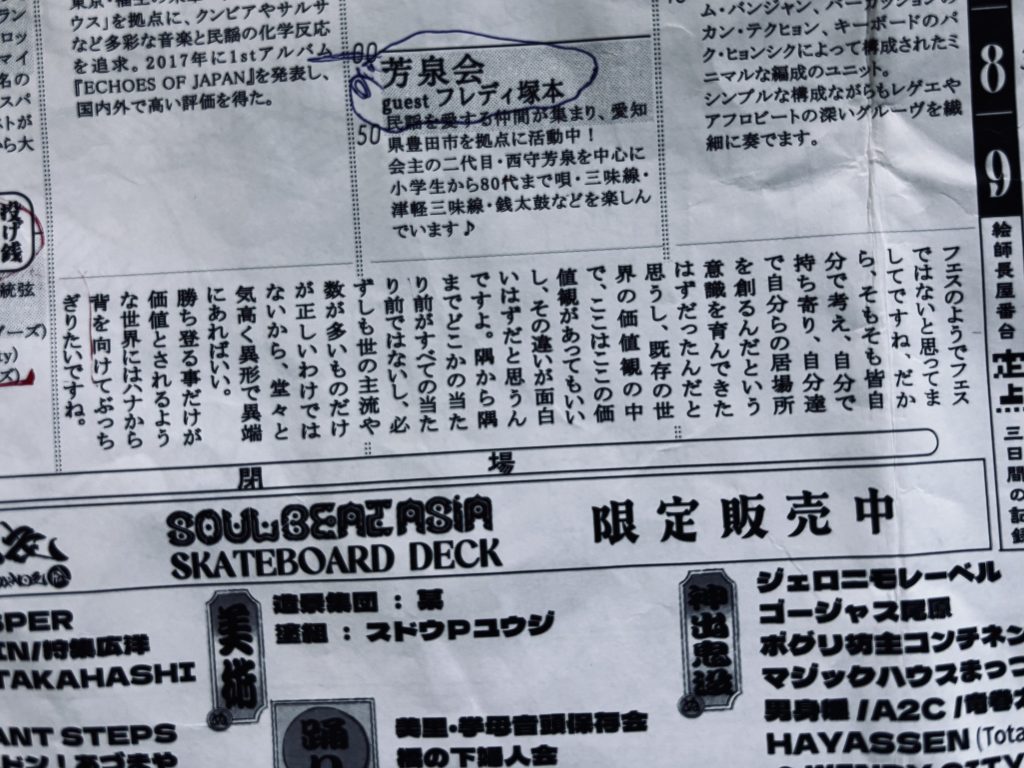 ウス」を拠点に、クンビアやサルサ
など多彩な音楽と民謡の化学反応
を追求。2017年に1stアルバム
『ECHOES OF JAPAN』を発表し、
国内外で高い評価を得た。
芳泉会
guest フレディ塚本
50
民謡を愛する仲間が集まり、愛知
県豊田市を拠点に活動中！
会主の二代目・西守芳泉を中心に
小学生から80代まで唄・三味線・
津軽三味線・銭太鼓などを楽しん
でいます♪
カン・テクヒョン、キーボードのパ
ク・ヒョンシクによって構成されたミ
ニマルな編成のユニット。
シンプルな構成ながらもレゲエや
アフロビートの深いグルーヴを繊
細に奏でます。
8
9
絵師長屋番台
定
上
三日間の記録
投げ銭
フェスのようでフェス
ではないと思ってま
してですね、だか
ら、そもそも皆自
分で考え、自分で
持ち寄り、自分達
で自分らの居場所
を創るんだという
意識を育んできた
はずだったんだと
思うし、既存の世
界の価値観の中
で、ここはこの価
値観があってもいい
し、その違いが面白
いはずだと思うん
ですよ。隅から隅
までどこかの当た
り前がすべての当た
り前ではないし、必
ずしも世の主流や
数が多いものだけ
が正しいわけでは
ないから、堂々と
気高く異形で異端
にあればいい。
勝ち登る事だけが
価値とされるよう
な世界にはハナから
背を向けてぶっち
ぎりたいですね。
閉場
SOUL BEAT ASIA
SKATEBOARD DECK
限定販売中
/狩集広洋
TAKAHASHI
美術
造景集団：某
塗組：スドウPユウジ
神出鬼没
ジェロニモレーベル
ゴージャス尾原
ポグリ坊主コンチネン
マジックハウスまっつ
/A2C/
HAYASSEN
ANT STEPS
踊り
美里・挙母音頭保存会
橋の下婦人会